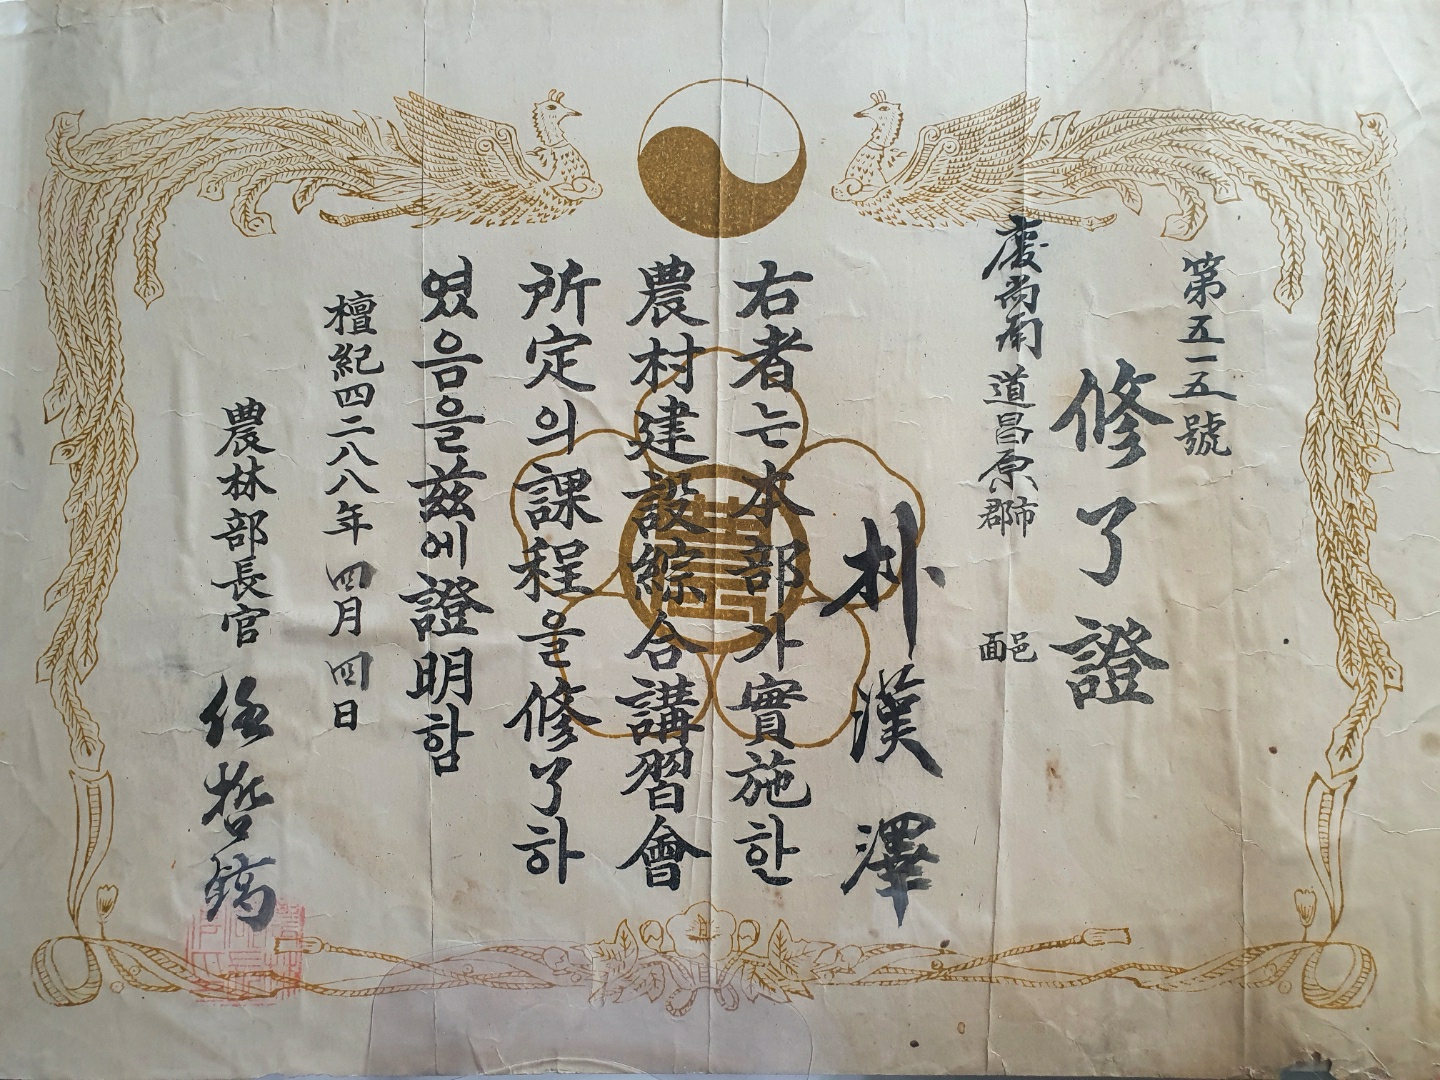 第五一五號
修了證
慶尚南道昌原市郡 邑面
朴漢澤
右者는本部가實施한
農村建設綜合講習會
所定의課程을修了하
였음을玆에證明함
檀紀四二八八年四月四日
農林部長官 任哲鎬
農